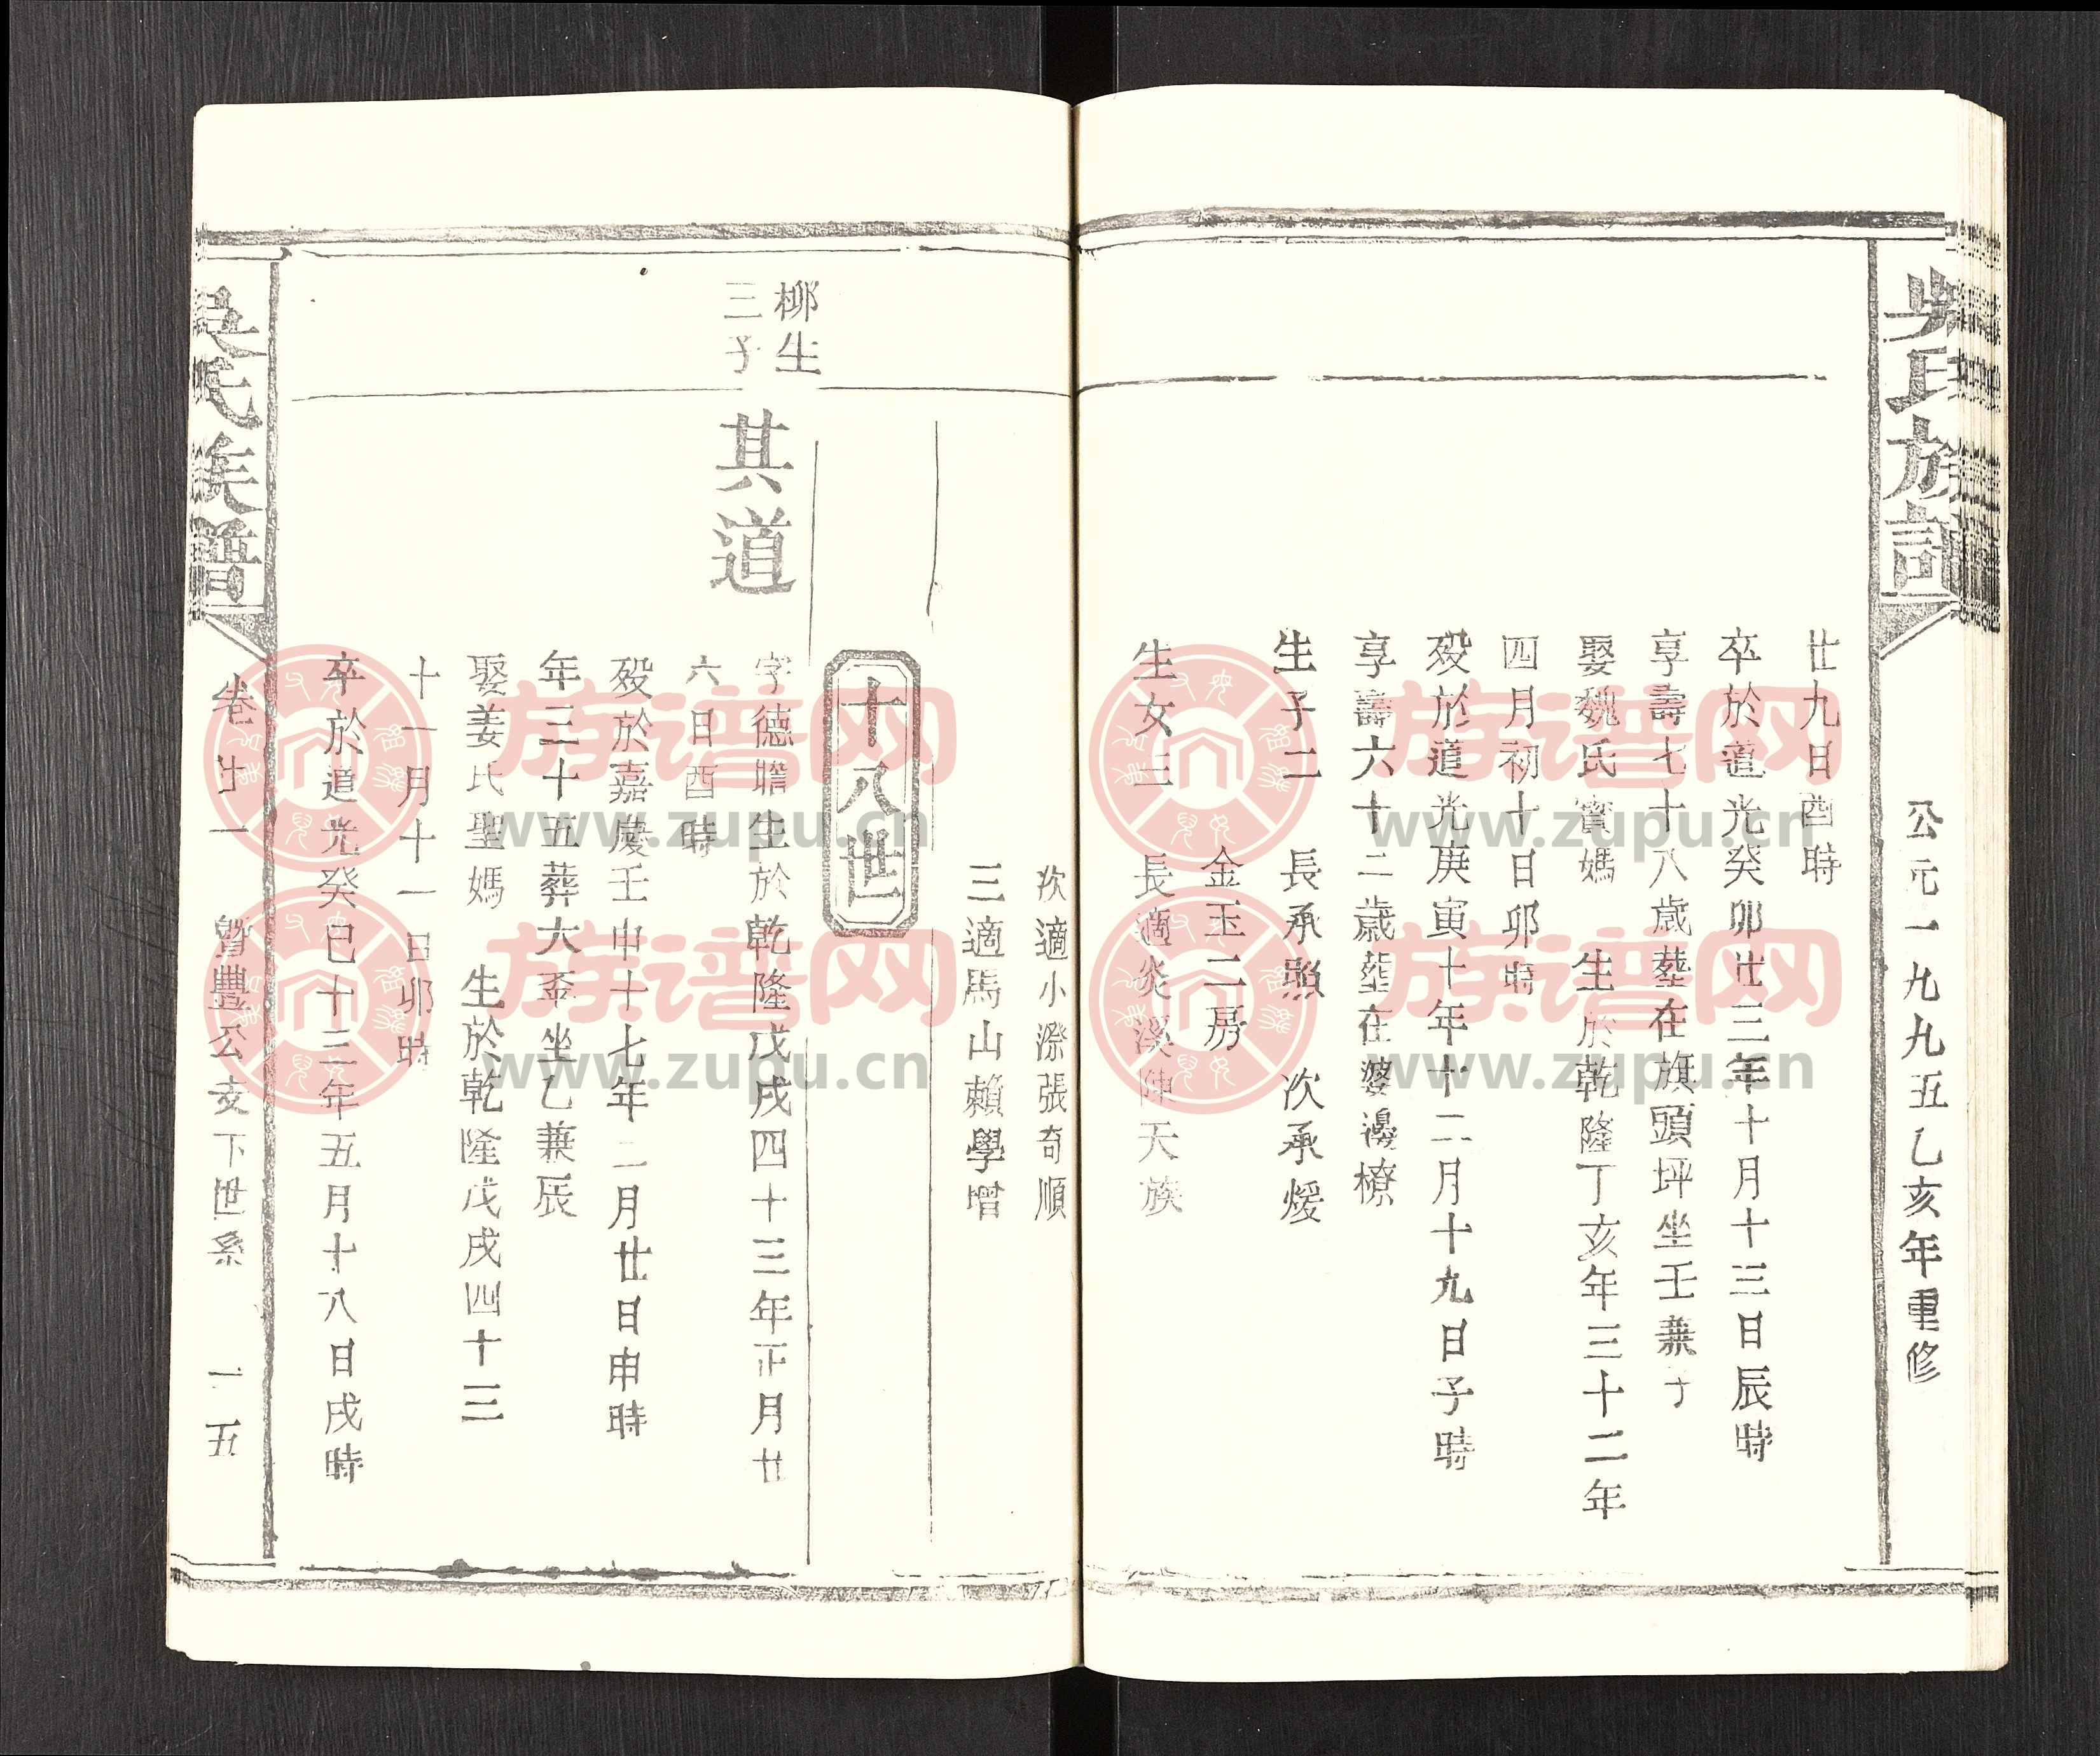 吳氏族譜
公元一九九五乙亥年重修
廿九日酉時
卒於道光癸卯廿三年十月十三日辰時
享壽七十八歲塟在旗頭坪坐壬兼子
娶魏氏寳媽 生於乾隆丁亥年三十二年
四月初十日卯時
殁於道光庚寅十年十二月十九日子時
享壽六十二歲塟在婆邊橑
生子二 長承照 次承煖
金玉二房
生女三 長適炎溪陳天族
次適小㵾張奇順
三適馬山賴學增
十八世
柳生
三子
其道
字德瞻生於乾隆戊戌四十三年正月廿
六日酉時
殁於嘉慶壬申十七年二月廿日申時
年三十五葬大坵坐乙兼辰
娶姜氏聖媽 生於乾隆戊戌四十三
十一月十一日卯時
卒於道光癸巳十三年五月十八日戌時
吳氏族譜
卷廿一
曾豐公支下世系
一五
族谱网
www.zupu.cn
族谱网
www.zupu.cn
族谱网
www.zupu.cn
族谱网
www.zupu.cn